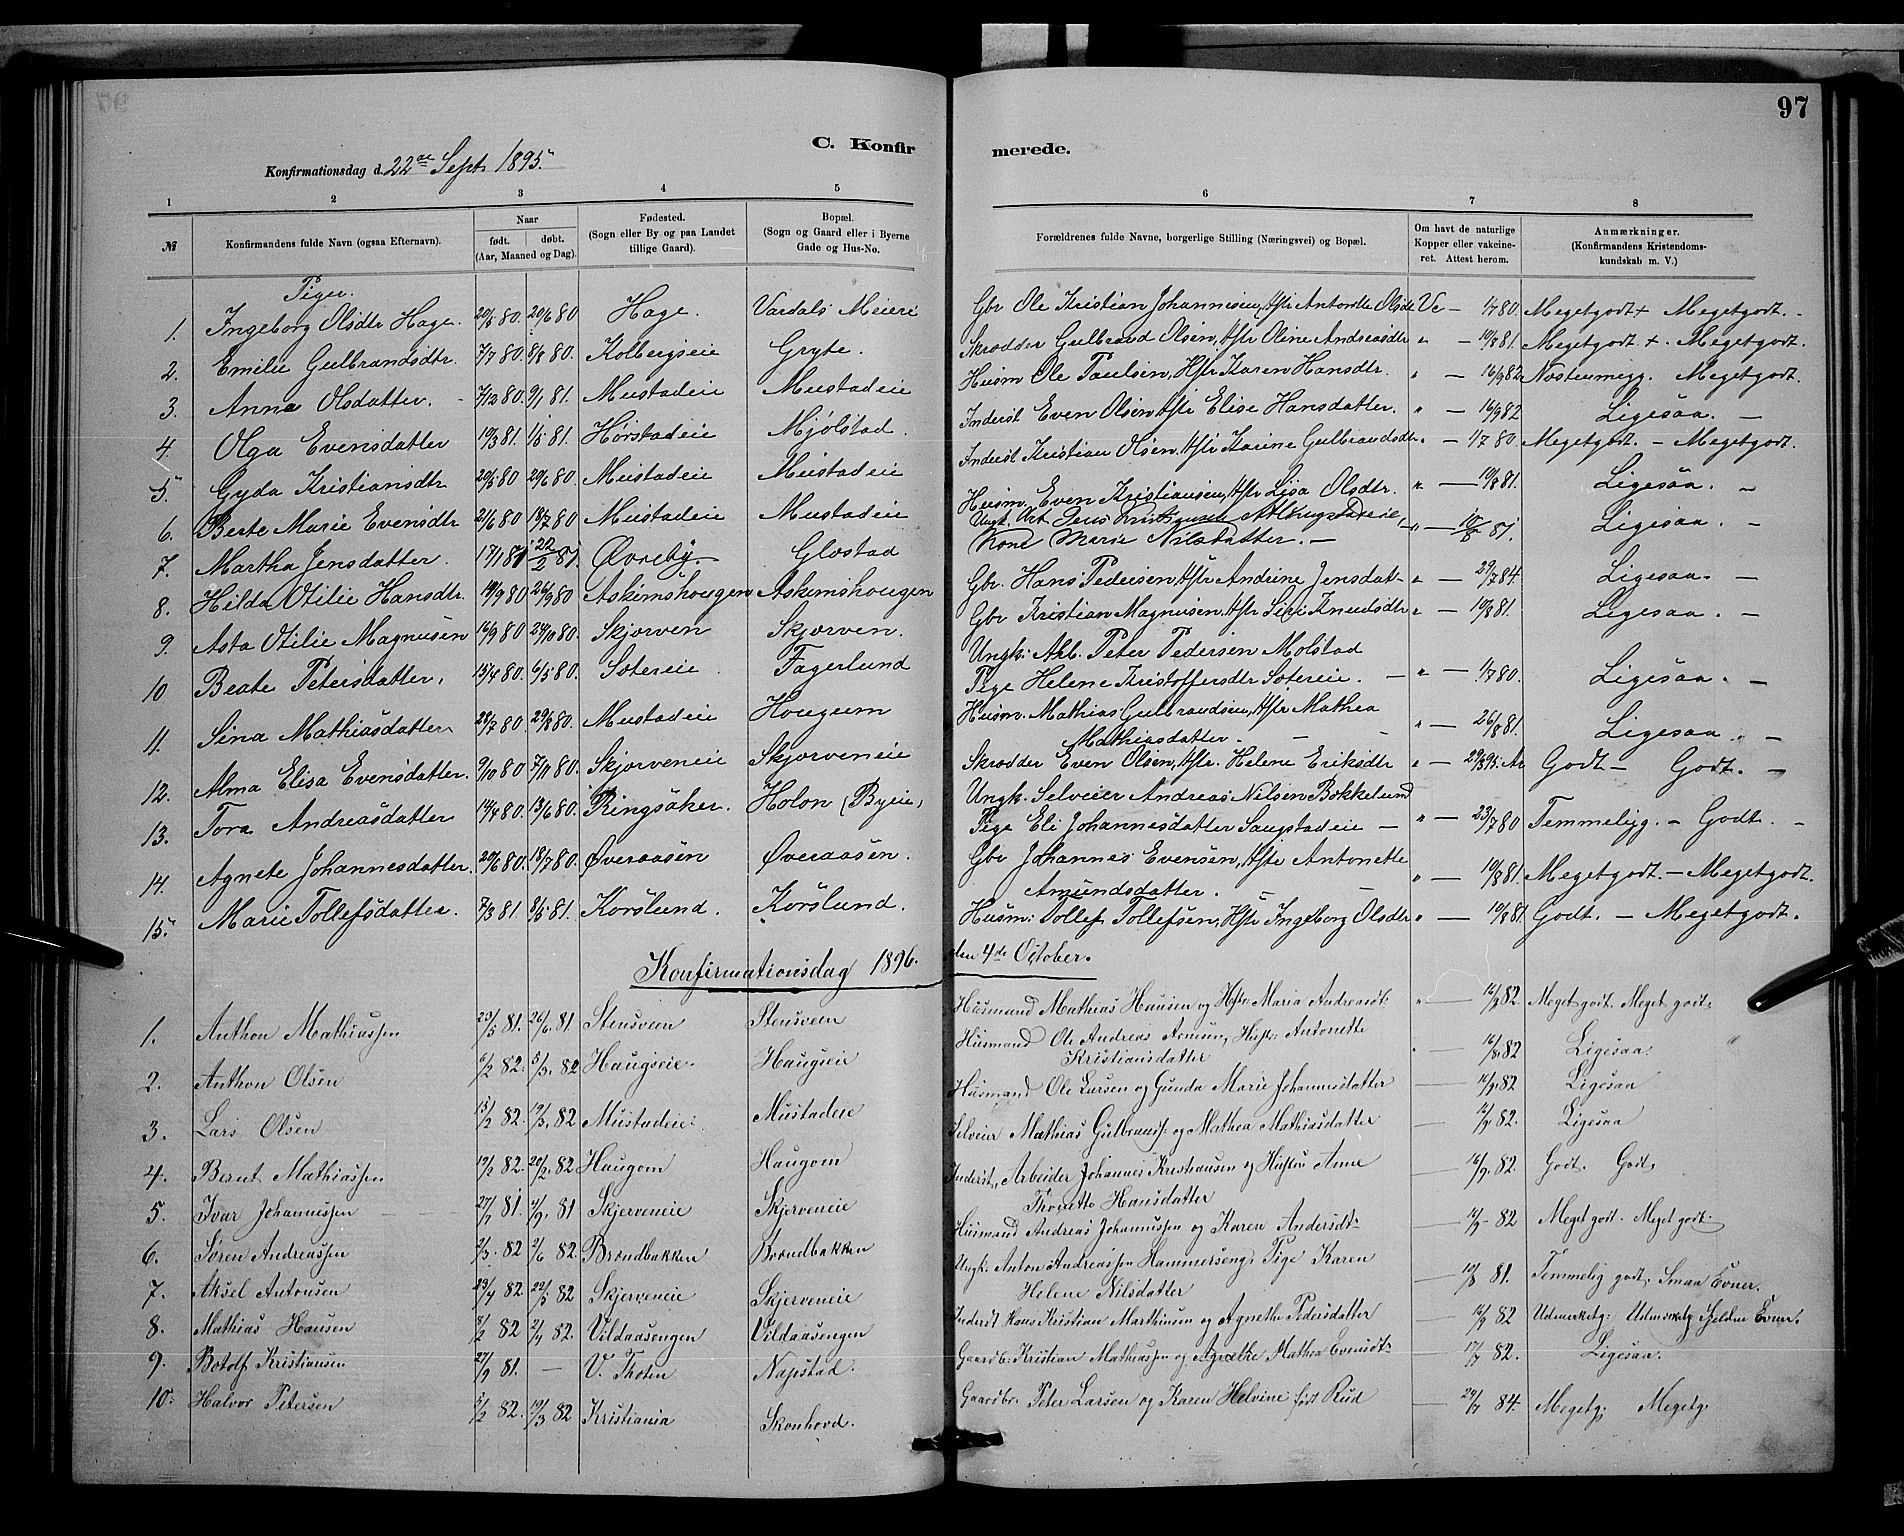 97
C. Konfirmerede.
Konfirmationsdag d. 22de Sept. 1895.
1 2 3 4 5 6 7 8
№ Konfirmandens fulde Navn (ogsaa Efternavn). Naar født. døbt. (Aar, Maaned og Dag). Fødested. (Sogn eller By og paa Landet tillige Gaard). Bopæl. (Sogn og Gaard eller i Byerne Gade og Hus-No. Forældrenes fulde Navne, borgerlige Stilling (Næringsvei) og Bopæl. Om havt de naturlige Kopper eller vakcineret. Attest herom. Anmærkninger. (Konfirmandens Kristendomskundskab m. V.)
Piger.
1. Ingeborg Olsdtr Hage. 20/5 80. 20/6 80 Hage. Vardals Meieri Gbr Ole Kristian Johannesen, Hstr Antonette Olsdtr Vc — 1/7 80. Megetgodt + Megetgodt. -
2. Emilie Gulbrandsdtr. 7/7 80 8/8 80. Kolbergseie Gryte. Skrædder Gulbrand Olsen, Hstr Oline Andreasdtr " - 10/8 81. Megetgodt +. Megetgodt.
3. Anna Olsdatter. 7/12 80. 9/1 81. Mustadeie Mustadeie Husm Ole Paulsen, Hstr Karen Hansdtr. " - 16/9 82 Næstenmegg. Megetgodt.
4. Olga Evensdatter 19/3 81. 1/5 81. Hørstadeie Mjølstad. Inderst Even Olsen, Hstr Elise Hansdatter. " — 16/9 82 Ligesaa. —
5. Gyda Kristiansdtr 20/5 80 20/6 80 Mustadeie Mustadeie Inderst Kristian Olsen, Hstr Karine Gulbrandsdtr. " — 1/7 80 Megetgodt. — Megetgodt.
6. Berte Marie Evensdtr 21/6 80 18/7 80 Mustadeie Mustadeie Husm. Even Kristiansen, Hstr Lisa Olsdtr. " — 10/8 81. Ligesaa. -
7. Martha Jensdatter. 17/1 81 22/2 81. Øvreby. Glæstad Ungk. Arb. Jens Kristiansen
Kone Marie Nilsdatter. — " — 10/8 81. Ligesaa. -
8. Hilda Otilie Hansdtr. 19/9 80 26/9 80 Askimshougen Askimshougen Gbr. Hans Pedersen, Hstr Andrine Jensdat- " — 29/7 84. Ligesaa. —
9. Asta Otilie Magnusen 16/9 80 24/10 80. Skjerven Skjerven. Gbr Kristian Magnusen, Hstr Siri Knudsdtr " — 10/8 81. Ligesaa. —
10 Beate Petersdatter. 15/4 80. 6/5 80. Sætereie Fagerlund Ungk: Arb. Peter Pedersen Molstad
Pige Helene Kristoffersdtr Sætereie. — " — 1/7 80. Ligesaa. —
11. Sina Mathiasdatter 28/7 80 29/8 80. Mustadeie Hougum Husm. Mathias Gulbrandsen, Hstr Mathea
Mathiasdatter. - - " — 26/8 81. Ligesaa. —
12. Alma Elisa Evensdatter. 9/10 80 7/11 80. Skjerveneie Skjerveneie Skrædder Even Olsen, Hstr. Helene Eriksdtr " — Godt — Godt. —
13. Tora Andreasdatter 14/4 80. 13/6 80. Ringsaker. Holon (Byeie) Ungk. Selveier Andreas Nilsen Bokkelund
Pige Eli Johannesdatter Saugstadeie — " — 23/7 80 Temmeligg. — Godt. -
14. Agnete Johannesdatter. 20/6 80. 18/7 80. Øveraasen Øveraasen. Gbr Johannes Evensen, Hstr Antonette
Amundsdatter. - — " — 10/8 81. Megetgodt. — Megetgodt.
15. Marie Tollefsdatter. 7/3 81. 8/5 81. Korslund. Korslund. Husm: Tollef Tollefsen, Hstr Ingeborg Olsdtr " — 10/8 81. Godt. — Megetgodt.
Konfirmationsdag 1896. den 4de October.
1. Anthon Mathiassen 23/5 81. 26/6 81 Stensveen Stensveen Husmand Mathias Hansen og Hstr: Maria Andreasdt: " — 16/9 82. Meget godt. Meget godt:
2. Anthon Olsen 6/2 82. 5/3 82 Haugseie. Haugseie Husmand Ole Andreas Hstr: Antonette
Kristiansdatter — 16/9 82 Ligesaa.
3. Lars Olsen 15/2 82. 19/3 82 Mustadeie. Mustadeie Husmand Ole Larsen og Gunda Marie Johannesdatter — 16/9 82. Ligesaa
4. Bernt Mathiassen 19/2 82. 20/2 82 Haugom Haugom Selveier Mathias Gulbrands: og Mathea Mathiasdatter — 82. Ligesaa
5. Ivar Johannessen 27/7 81. 4/9 81 Skjerveneie Skjerveneie Inderst, Arbeider Johannes Kristiansen og Hustru Anne
Thonette Hansdatter — 16/9 82. Godt. Godt,
6. Søren Andreassen 2/3 82 2/6 82. Brændbakken Brændbakken Husmand Andreas Johannessen og Karen Andersdt: — 82 Meget godt. Meget godt.
7. Aksel Antonsen 23/4 82 22/5 82 Skjerveneie Skjerveneie Ungk. Anton Andreassen Hammerseng, Pige Karen
Helene Nilsdatter — 10/8 81. Temmelig godt, Smaa Evner.
8. Mathias Hansen 8/2 82 2/4 82. Vildaasengen Vildaasengen Inderst Hans Kristian Marthinsen og Agnethe Pedersdatter — 16/9 82 Udmærketg: Udmærketg Sjeldne Evner.
9. Botolf Kristiansen 27/9 81. — V. Thoten Næpstad. Gaardb: Kristian Mathiassen og Agnethe Mathea Evensdt: — 17/7 82. Ligesaa.
10. Halvor Petersen 5/2 82. 19/3 82 Kristiania Skonhovd. Gaardbr. Peter Larsen og Karen Helvine født Rud — 29/7 84. Megetg; Megetg;